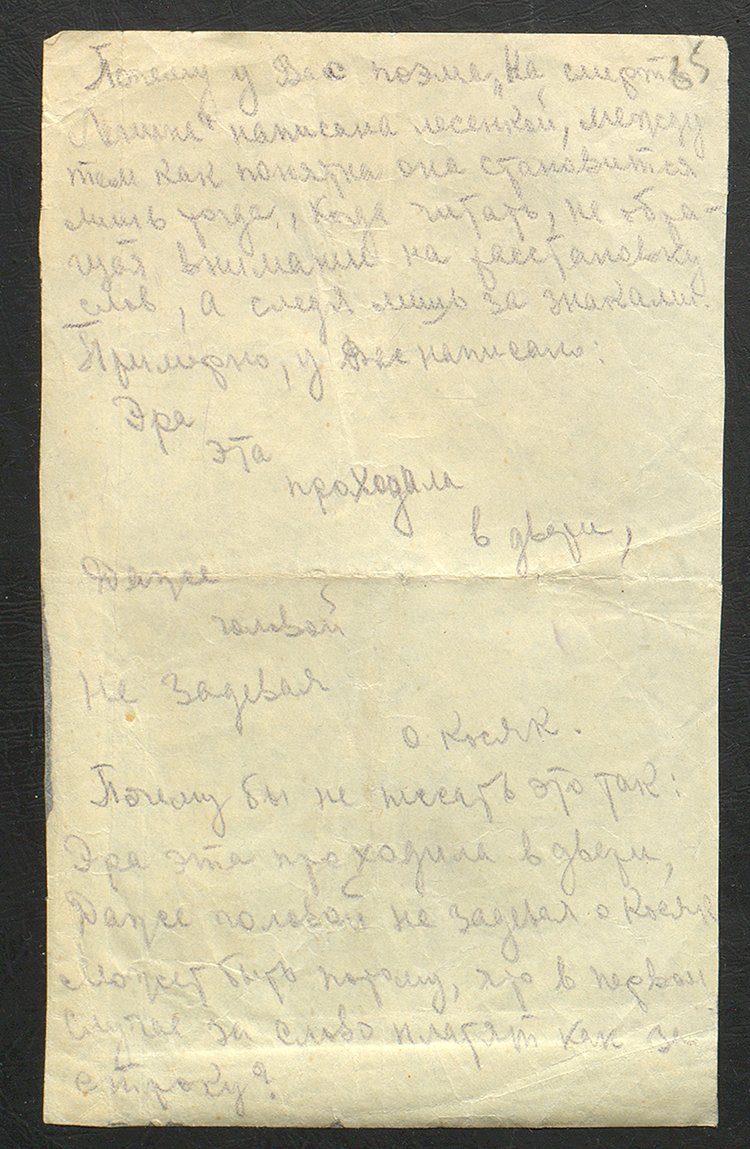 Почему у Вас поэма „На смерть 65
Ленина" написана лесенкой, между
тем как понятна она становится
лишь тогда, когда читать, не обра-
щая внимания на расстановку
слов, а следя лишь за знаками.
Примерно, у Вас написано:
Эра
эта
проходила
в двери,
Даже
головой
Не задевая
о косяк.
Почему бы не писать это так:
Эра эта проходила в двери,
Даже головой не задевая о косяк
Может быть потому, что в первом
случае за слово платят как за
строку?